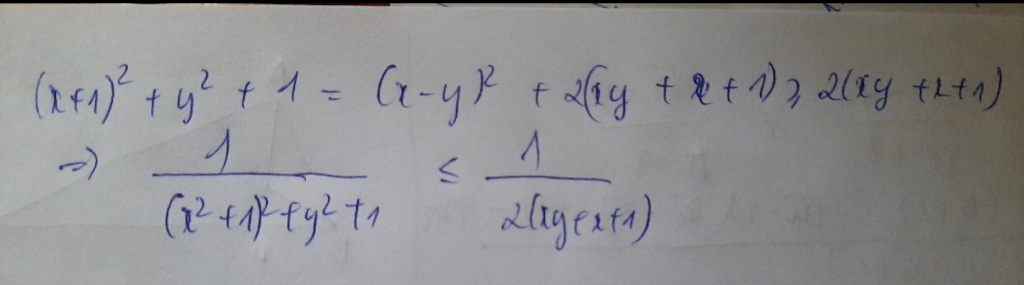 (x+1)² + y² + 1 = (x-y)² + 2(xy + x + 1) ≥ 2(xy + x + 1)
=> 1/((x²+1)² + y² + 1) ≤ 1/(2(xy + x + 1))